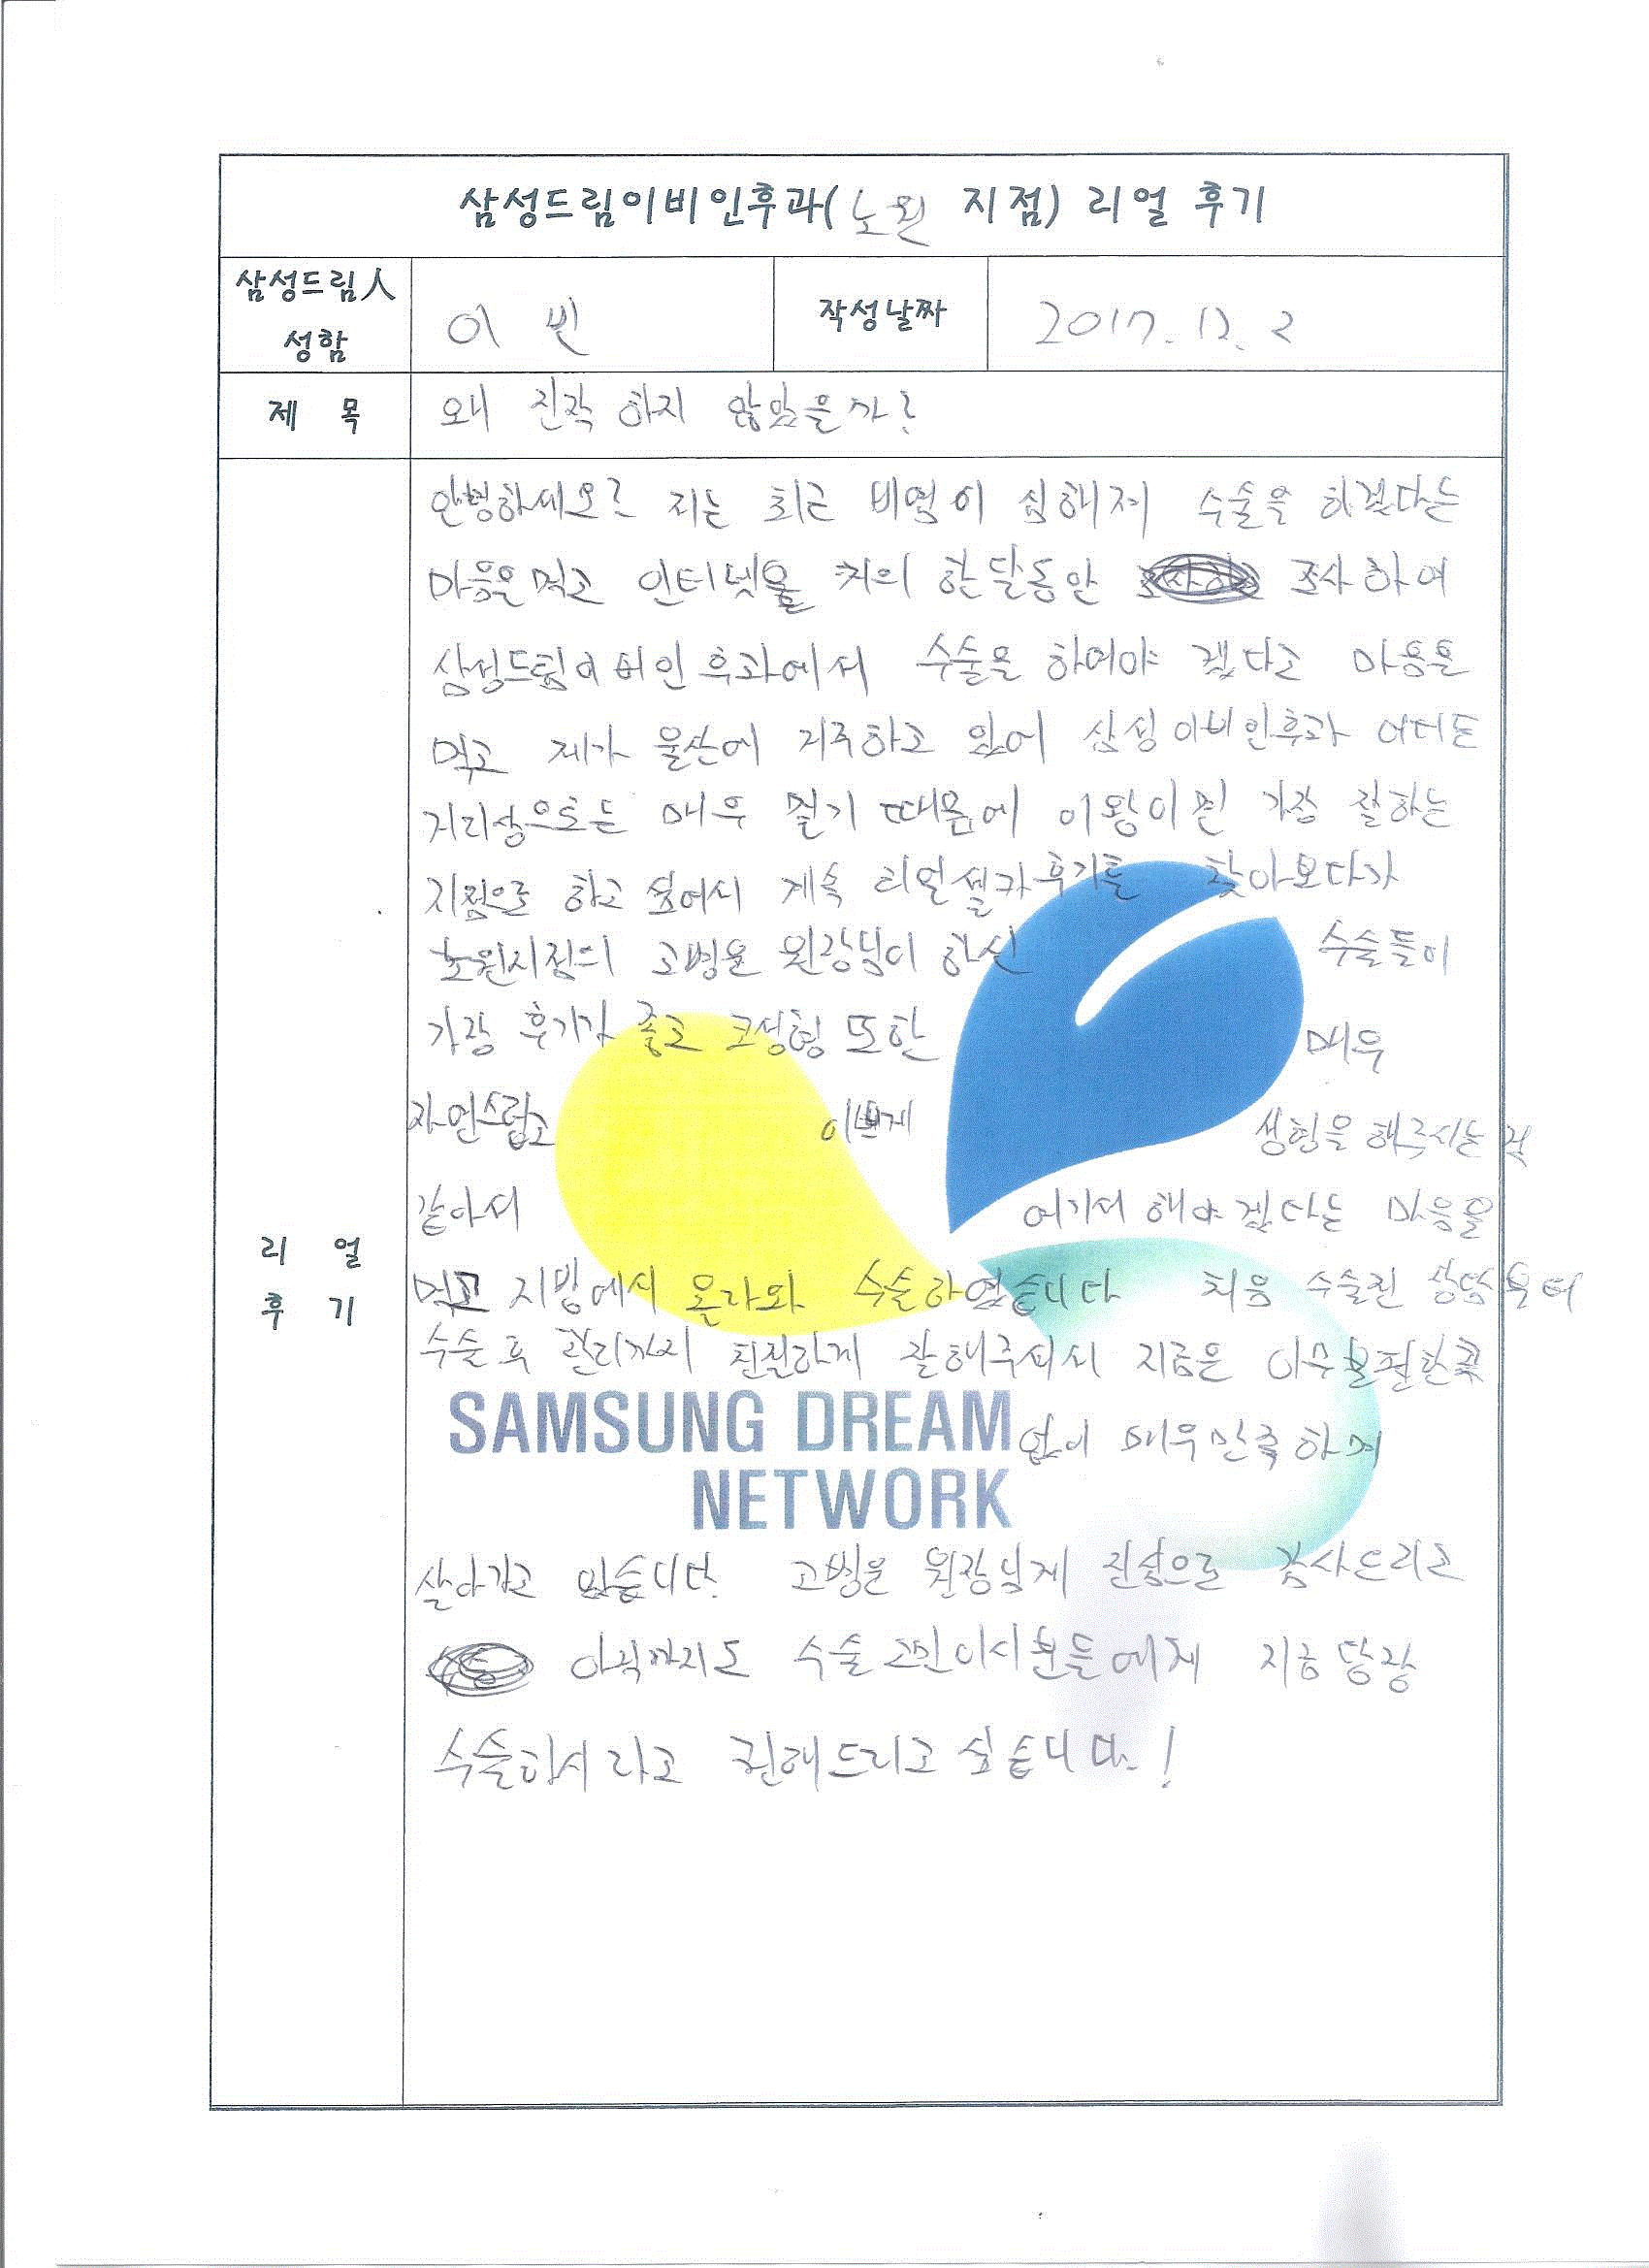 삼성드림이비인후과(노원 지점) 리얼 후기
삼성드림人 성함
이 빈
작성날짜
2017. 12. 2
제 목
왜 진작 하지 않았을까?
리 얼 후 기
안녕하세요? 저는 최근 비염이 심해져 수술을 하겠다는
마음을 먹고 인터넷을 거의 한달동안 조사하여
삼성드림이비인후과에서 수술을 하여야 겠다고 마음을
먹고 제가 울산에 거주하고 있어 삼성이비인후과 어디든
거리상으로는 매우 멀기 때문에 이왕이면 가장 잘하는
지점으로 하고 싶어서 계속 리얼셀카후기를 찾아보다가
노원지점의 고병윤 원장님이 하신 수술들이
가장 후기가 좋고 코성형 또한 매우
자연스럽고 이쁘게 성형을 해주시는 것
같아서 여기서 해야 겠다는 마음을
먹고 지방에서 올라와 수술하였습니다 처음 수술전 상담부터
수술 후 관리까지 친절하게 잘해주셔서 지금은 아무불편한곳
SAMSUNG DREAM 없이 매우만족하게
NETWORK
살아가고 있습니다. 고병윤 원장님께 진심으로 감사드리고
아직까지도 수술고민이시분들에게 지금 당장
수술하시라고 권해드리고 싶습니다!